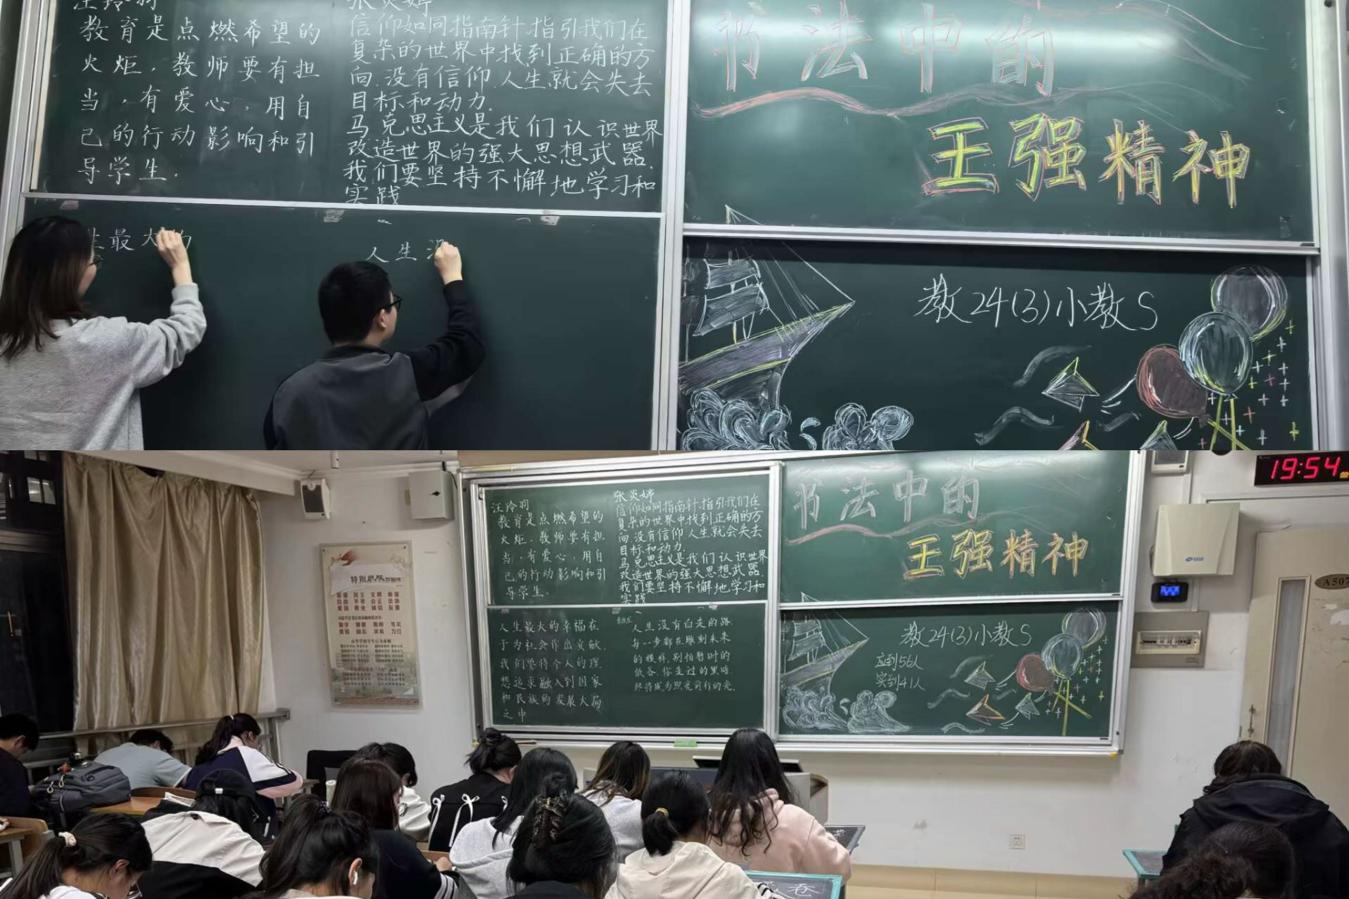 汪冷羽
教育是点燃希望的
火炬，教师要有担
当，有爱心，用自
己的行动影响和引
导学生.
张炎婷
信仰如同指南针，指引我们在
复杂的世界中找到正确的方
向，没有信仰，人生就会失去
目标和动力.
马克思主义是我们认识世界
改造世界的强大思想武器，
我们要坚持不懈地学习和
实践
书法中的
王强精神
生最大的
人生没
教24(3)小教S
19:54
汪冷羽
教育是点燃希望的
火炬，教师要有担
当，有爱心，用自
己的行动影响和引
导学生.
张炎婷
信仰如同指南针，指引我们在
复杂的世界中找到正确的方
向，没有信仰，人生就会失去
目标和动力.
马克思主义是我们认识世界
改造世界的强大思想武器
我们要坚持不懈地学习和
实践
书法中的
王强精神
人生最大的幸福在
于为社会作出贡献，
我们要将个人的理
想追求融入到国家
和民族的发展大局
之中
人生没有白走的路
每一步都在雕刻未来
的模样，别怕暂时的
低谷，你走过的黑暗
终将成为照亮前行的光.
教24(3)小教S
应到56人
实到41人
A507